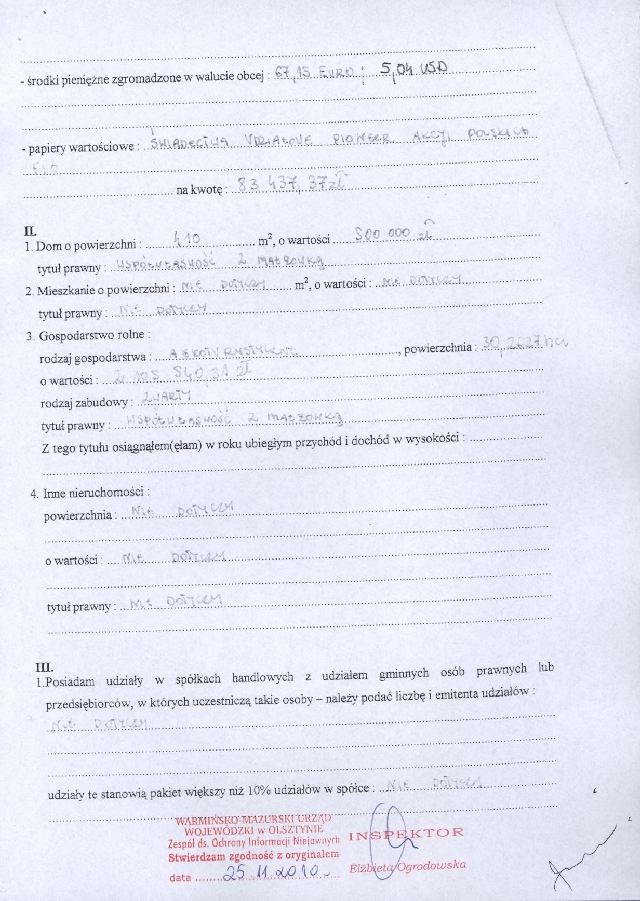 - środki pieniężne zgromadzone w walucie obcej : 67,15 EURO ; 5,04 USD
- papiery wartościowe : ŚWIADECTWA UDZIAŁOWE PIONEER AKCJI POLSKICH
FIO
na kwotę : 83 437,37 zł
II.
1. Dom o powierzchni : 410 m², o wartości 500 000 zł
tytuł prawny : WSPÓŁWŁASNOŚĆ Z MAŁŻONKĄ
2. Mieszkanie o powierzchni : NIE DOTYCZY m², o wartości : NIE DOTYCZY
tytuł prawny : NIE DOTYCZY
3. Gospodarstwo rolne :
rodzaj gospodarstwa : , powierzchnia : 30,2627 ha
o wartości : 105 540,31 zł
rodzaj zabudowy : ZWARTY
tytuł prawny : WSPÓŁWŁASNOŚĆ Z MAŁŻONKĄ
Z tego tytułu osiągnąłem(ęłam) w roku ubiegłym przychód i dochód w wysokości :
4. Inne nieruchomości :
powierzchnia : NIE DOTYCZY
o wartości : NIE DOTYCZY
tytuł prawny : NIE DOTYCZY
III.
1.Posiadam udziały w spółkach handlowych z udziałem gminnych osób prawnych lub
przedsiębiorców, w których uczestniczą takie osoby – należy podać liczbę i emitenta udziałów :
NIE DOTYCZY
udziały te stanowią pakiet większy niż 10% udziałów w spółce : NIE DOTYCZY
WARMIŃSKO-MAZURSKI URZĄD
WOJEWÓDZKI w OLSZTYNIE
Zespół ds. Ochrony Informacji Niejawnych
Stwierdzam zgodność z oryginałem
data 25.11.2010
INSPEKTOR
Elżbieta Ogrodowska